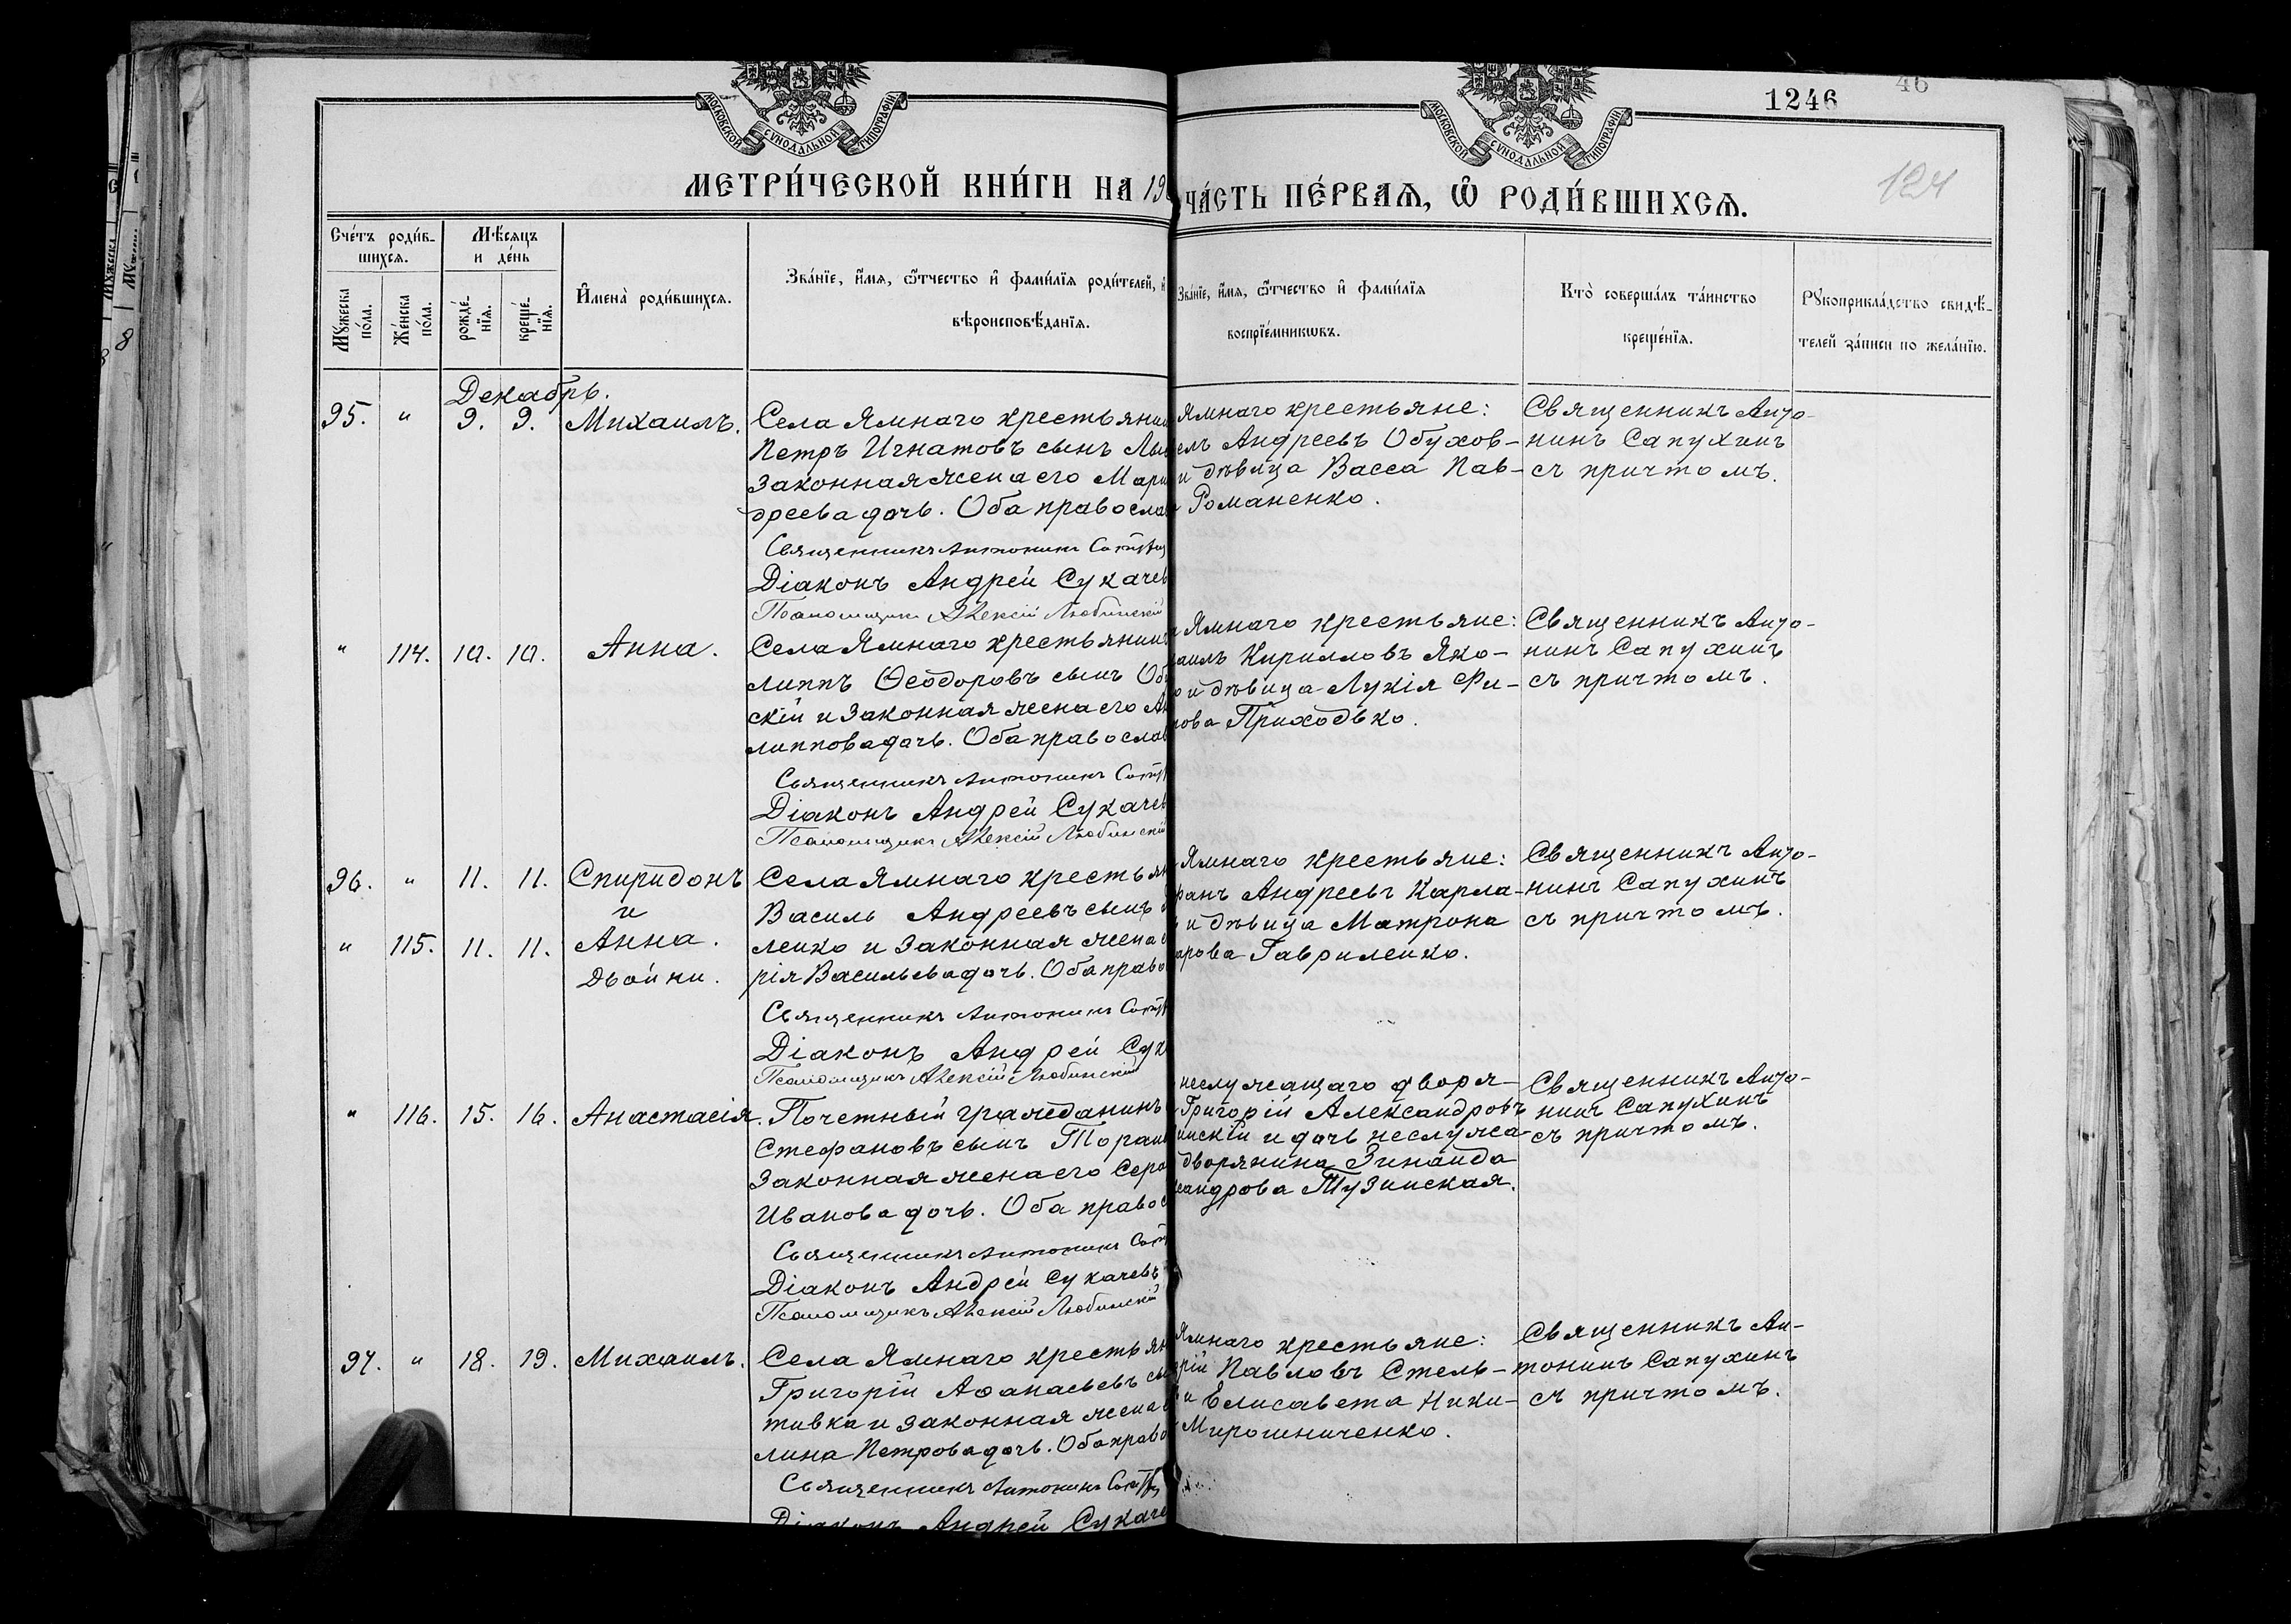 46
1246
124
МОСКОВСКОЙ СѴНОДАЛЬНОЙ ТИПОГРАФІИ
МОСКОВСКОЙ СѴНОДАЛЬНОЙ ТИПОГРАФІИ
МЕТРИ́ЧЕСКОЙ КНИ́ГИ НА 19
ЧА́СТЬ ПЕ́РВАѦ, Ѡ҆ РОДИ́ВШИХСѦ.
Сче́тъ роди́в-
шихсѧ.
Мꙋ́жеска по́ла.
Же́нска по́ла.
Мѣ́сѧцъ
и де́нь
рожде́-
нїѧ.
креще́-
нїѧ.
И҆мена̀ роди́вшихсѧ.
Зва́нїе, и҆́мѧ, ѻ҆́тчество и҆ фами́лїѧ роди́телей, и҆
вѣроисповѣ́данїѧ.
Зва́нїе, и҆́мѧ, ѻ҆́тчество и҆ фами́лїѧ
воспрїе́мникѡвъ.
Кто̀ соверша́лъ та́инство
креще́нїѧ.
Рꙋкоприкла́дство свидѣ́-
телей за́писи по жела́нїю.
Декабрь.
95. " 9. 9. Михаилъ.
Села Ямнаго крестьянин
Петръ Игнатовъ сынъ
Законная жена его Мари
дреева дочь. Оба правосла
Священникъ Антонинъ
Діаконъ Андрей Сукачев
Псаломщикъ Алексій Любинскій
Ямнаго крестьяне:
елъ Андреевъ Обухов-
и дѣвица Васса Пав-
Романенко.
Священникъ Анто-
нинъ Сапухинъ
съ причтомъ.
" 114. 10. 10. Анна.
Села Ямнаго крестьянин
липпъ Ѳеодоровъ сынъ Об
скій и законная жена его
липпова дочь. Оба православ
Священникъ Антонинъ
Діаконъ Андрей Сукачев
Псаломщикъ Алексій Любинскій
Ямнаго крестьяне:
аилъ Кирилловъ Яко-
и дѣвица Лукія Фи-
рова Приходько.
Священникъ Анто-
нинъ Сапухинъ
съ причтомъ.
96. " 11. 11. Спиридонъ
и
" 115. 11. 11. Анна.
Двойни.
Села Ямнаго крестьян
Василь Андреевъ сынъ
ленко и законная жена
рія Васильева дочь. Оба право
Священникъ Антонинъ
Діаконъ Андрей Сук
Псаломщикъ Алексій Любинскій
Ямнаго крестьяне:
фанъ Андреевъ Карла-
и дѣвица Матрона
арова Гавриленко.
Священникъ Анто-
нинъ Сапухинъ
съ причтомъ.
" 116. 15. 16. Анастасія.
Почетный гражданинъ
Стефановъ сынъ Торан
Законная жена его Сера
Иванова дочь. Оба правос
Священникъ Антонинъ
Діаконъ Андрей Сукачевъ
Псаломщикъ Алексій Любинскій
неслужащаго дворя-
Григорій Александровъ
инскій и дочь неслужа-
дворянина Зинаида
сандрова Тузинская.
Священникъ Анто-
нинъ Сапухинъ
съ причтомъ.
97. " 18. 19. Михаилъ.
Села Ямнаго крестьян
Григорій Аѳанасьевъ сы
тивка и законная жена
лина Петрова дочь. Оба право
Священникъ Антонинъ
Діаконъ Андрей Сукаче
Ямнаго крестьяне:
рій Павловъ Стель-
и Елисавета Ники-
Мирошниченко.
Священникъ Ан-
тонинъ Сапухинъ
съ причтомъ.